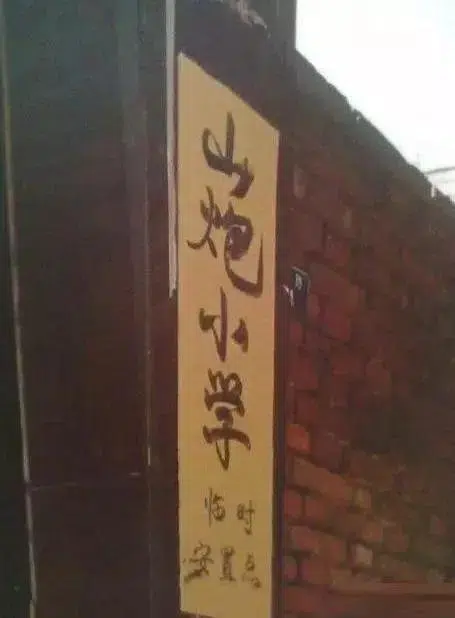 山炮小学
临时
安置点